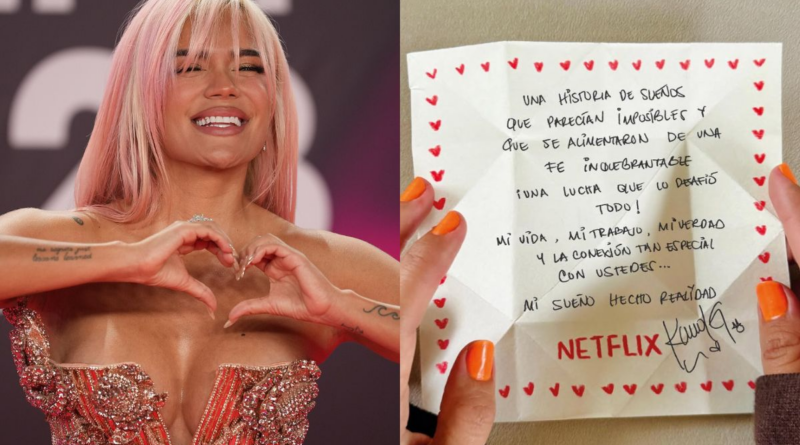 UNA HISTORIA DE SUEÑOS
QUE PARECÍAN IMPOSIBLES Y
QUE SE ALIMENTARON DE UNA
FE INQUEBRANTABLE
¡UNA LUCHA QUE LO DESAFIÓ
TODO!
MI VIDA, MI TRABAJO, MI VERDAD
Y LA CONEXIÓN TAN ESPECIAL
CON USTEDES...
MI SUEÑO HECHO REALIDAD
NETFLIX